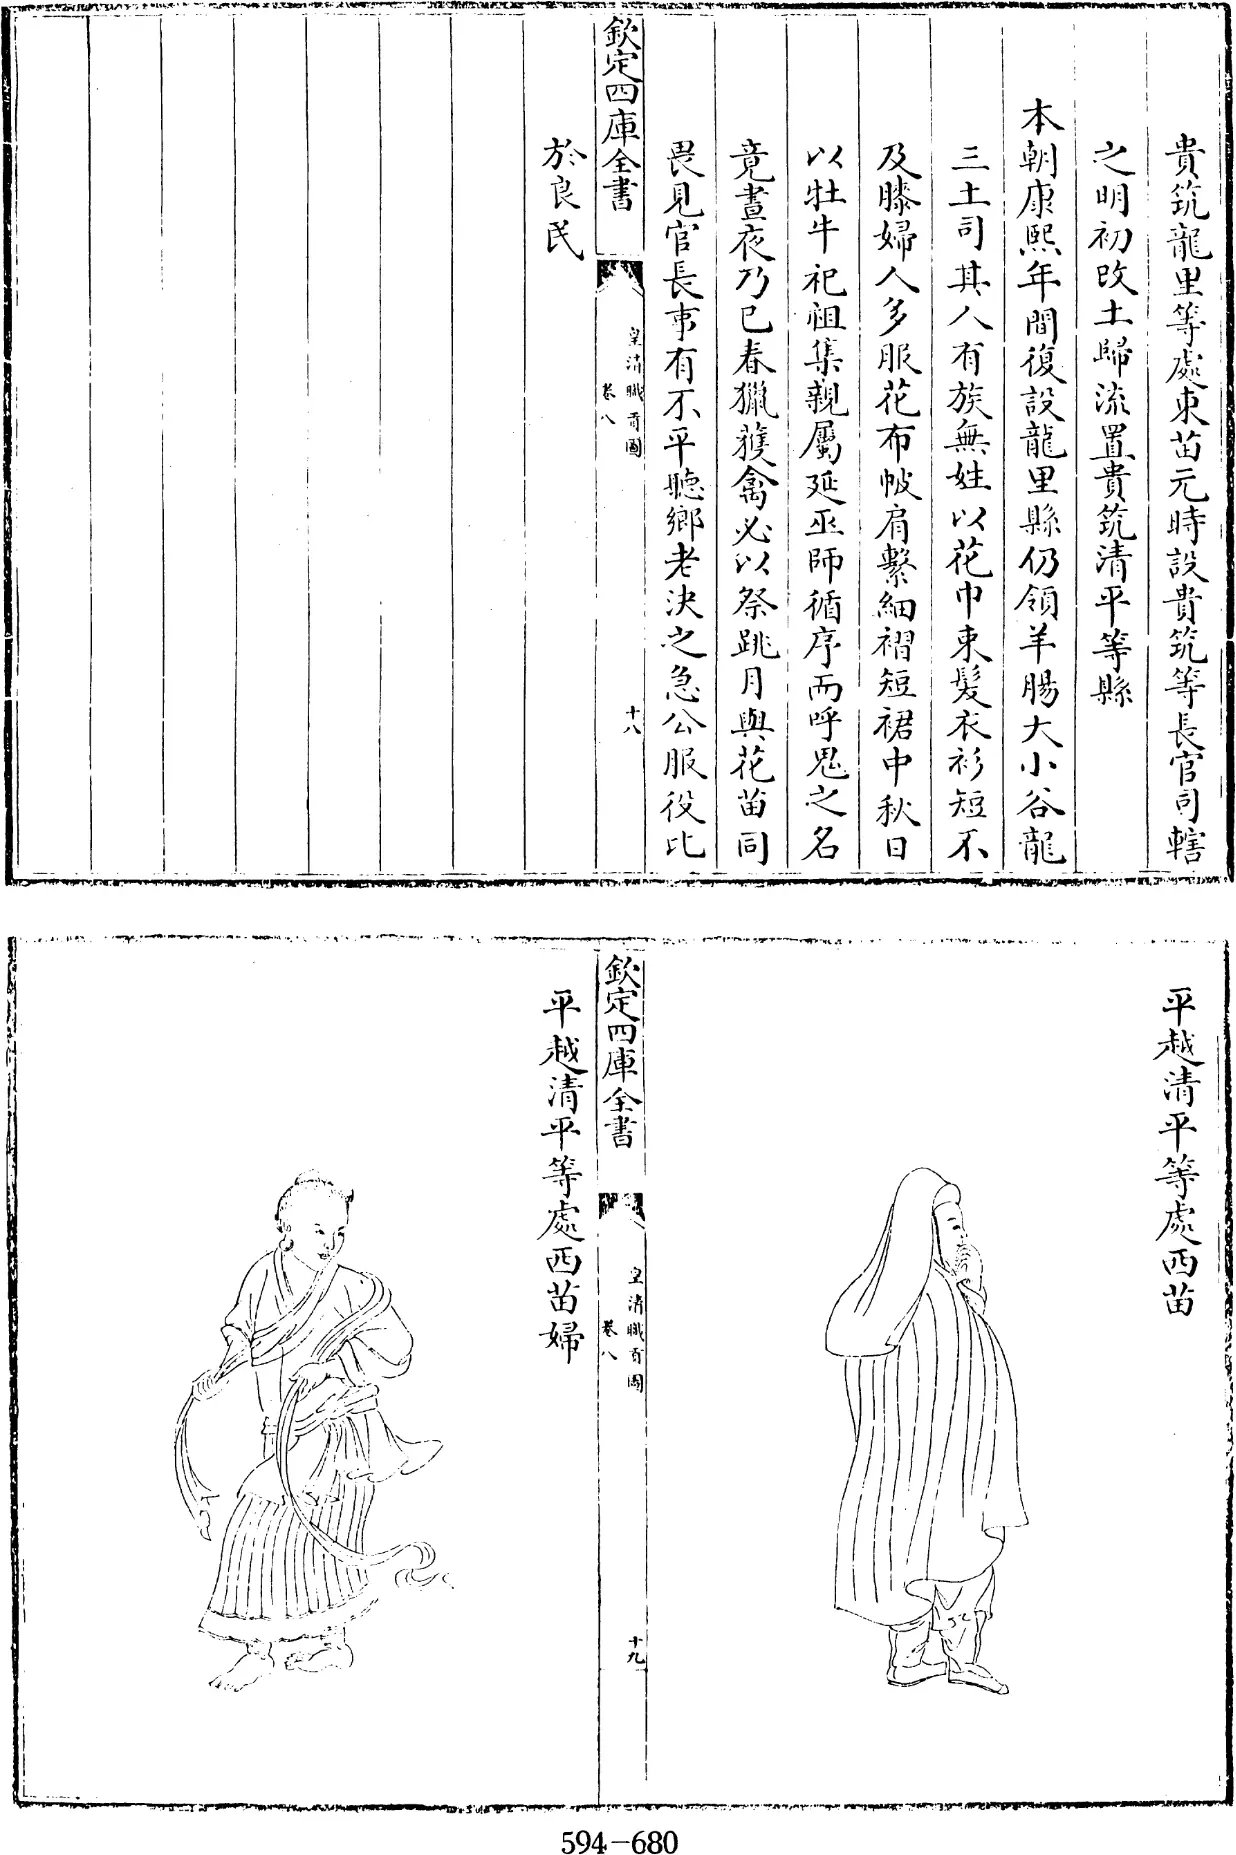 貴筑龍里等處東苗元時設貴筑等長官司轄
之明初改土歸流置貴筑清平等縣
本朝康熙年間復設龍里縣仍領羊腸大小谷龍
三土司其人有族無姓以花巾束髮衣衫短不
及膝婦人多服花布帔肩繫細褶短裙中秋日
以牡牛祀祖集親屬延巫師循序而呼鬼之名
竟晝夜乃已春獵獲禽必以祭跳月與花苗同
畏見官長事有不平聽鄉老決之急公服役比
欽定四庫全書
皇清職貢圖
卷八
十八
於良民
平越清平等處西苗
欽定四庫全書
皇清職貢圖
卷八
十九
平越清平等處西苗婦
594-680